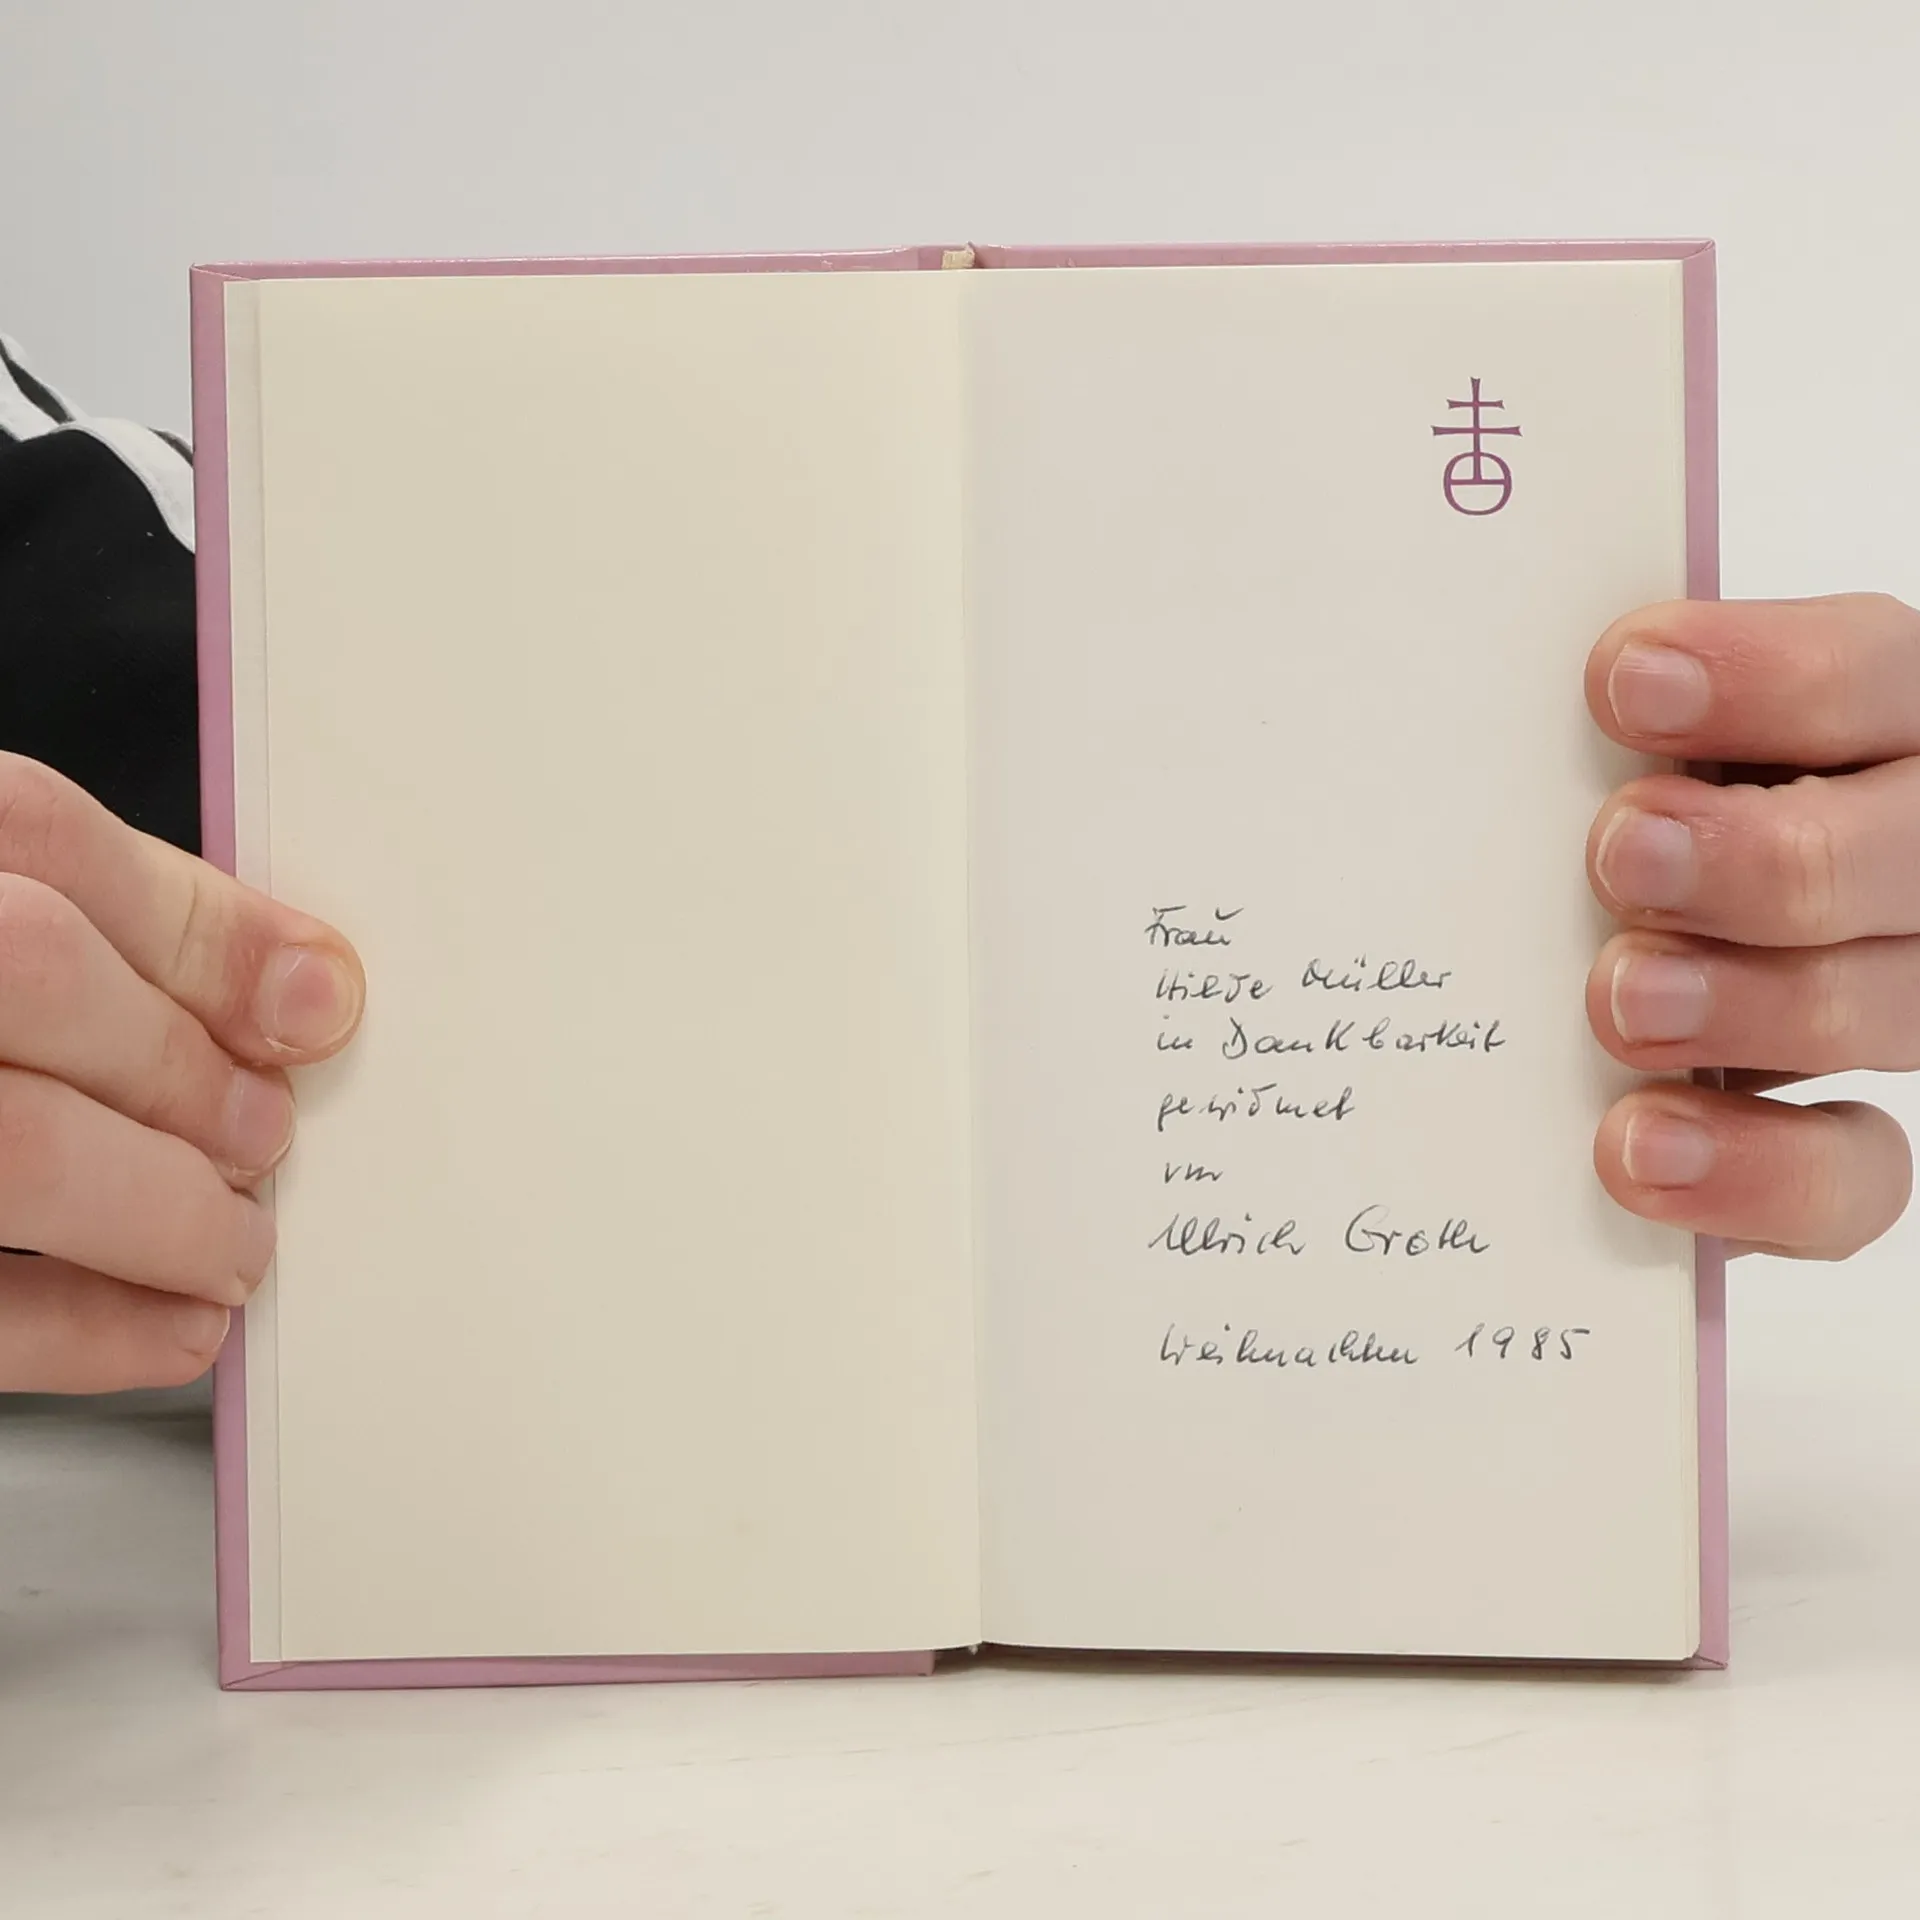 Frau
Hilde Müller
in Dankbarkeit
gewidmet
von
Ullrich Groth
Weihnachten 1985